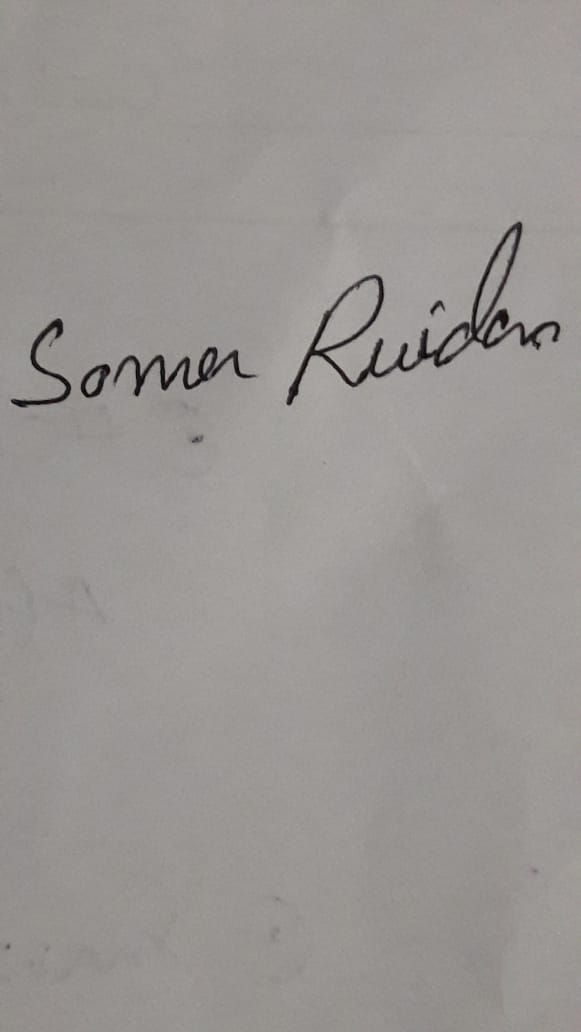 Somen Ruidas